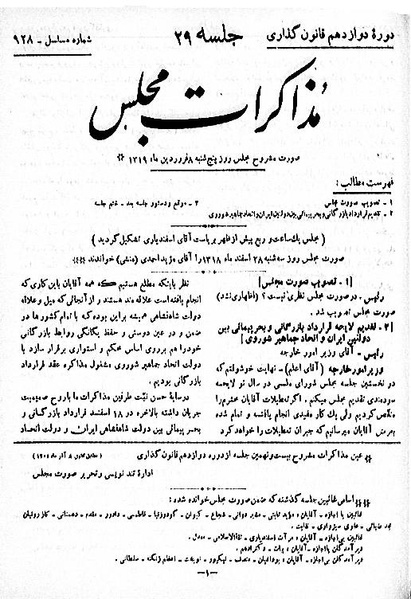 دورهٔ دوازدهم قانون گذاری
جلسه ۲۹
شماره مسلسل - ۹۲۸
مذاکرات مجلس
صورت مشروح مجلس روز پنج‌شنبه ۸ فروردین ماه ۱۳۱۹
فهرست مطالب:
۱ - تصویب صورت مجلس
۲ - تقدیم قرارداد بازرگانی و بحر پیمائی بین دولتین ایران و اتحاد جماهیر شوروی
۳ - موقع و دستور جلسه بعد - ختم جلسه
(مجلس یک ساعت و ربع پیش از ظهر بریاست آقای اسفندیاری تشکیل گردید)
صورت مجلس روز سه شنبه ۲۸ اسفند ماه ۱۳۱۸ را آقای مؤید احمدی (منشی) خواندند
[۱ - تصویب صورت مجلس]
رئیس - در صورت مجلس نظری نیست؟ (اظهاری نشد)
صورت مجلس تصویب شد.
[۲ - تقدیم لایحه قرارداد بازرگانی و بحر پیمائی بین دولتین ایران و اتحاد جماهیر شوروی]
رئیس - آقای وزیر امور خارجه
وزیر امور خارجه (آقای اعلم) - نهایت خوشوقتم که
در نخستین جلسه مجلس شورای ملی در سال نو لایحه
سودمندی تقدیم مجلس میکنم. اگر تعطیلات آقایان عشرم را
مناقص کردیم ولی یک کار مفیدی انجام یافته و تمام شده
بعرض آقایان میرسانیم که جبران تعطیلات را خواهد کرد
نظر باینکه مطلع هستیم همه آقایان باین کاری که
انجام یافته است علاقه مند هستند و از آنجائی که میل و علاقه
دولت شاهنشاهی همیشه براین بوده که با تمام کشورها در
ضمن و در عین دوستی و حفظ یگانگی روابط بازرگانی
خود را هم بر روی اساس محکم و استواری برقرار سازد با
دولت اتحاد جماهیر شوروی مشغول مذاکره عقد قرارداد
بازرگانی بودیم.
درسایهٔ حسن نیت طرفین مذاکرات ما با روح صمیمیت
جریان داشته بالاخره در ۱۸ اسفند قرارداد بازرگانی و
بحر پیمائی بین دولت شاهنشاهی ایران و دولت اتحاد
عین مذاکرات مشروح بیست و نهمین جلسه از دوره دوازدهم قانون گذاری
اداره تند نویسی و تحریر صورت مجلس
اسامی غائبین جلسه گذشته که ضمن صورت مجلس خوانده شده:
- ۱ -